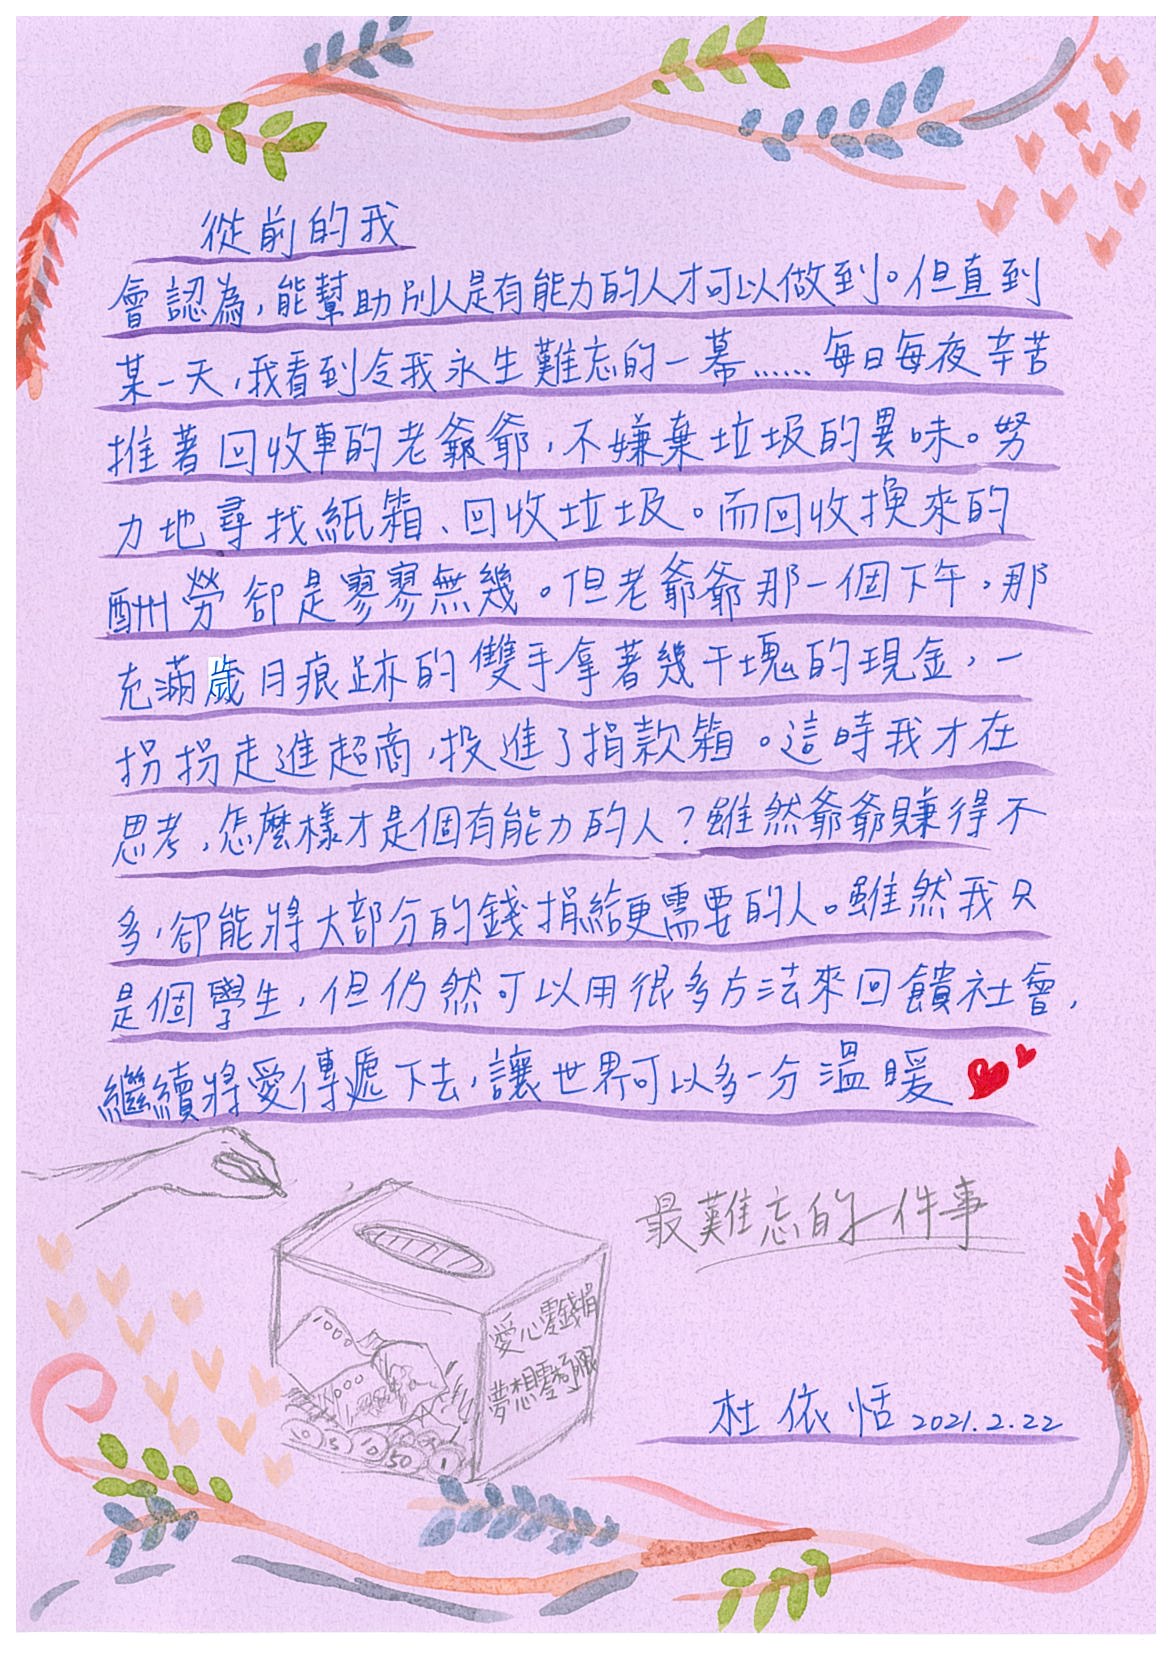 從前的我
會認為，能幫助別人是有能力的人才可以做到。但直到
某一天，我看到令我永生難忘的一幕……每日每夜辛苦
推著回收車的老爺爺，不嫌棄垃圾的異味。努
力地尋找紙箱、回收垃圾。而回收換來的
酬勞卻是寥寥無幾。但老爺爺那一個下午，那
充滿歲月痕跡的雙手拿著幾千塊的現金，一
拐拐走進超商，投進了捐款箱。這時我才在
思考，怎麼樣才是個有能力的人？雖然爺爺賺得不
多，卻能將大部分的錢捐給更需要的人。雖然我只
是個學生，但仍然可以用很多方法來回饋社會，
繼續將愛傳遞下去，讓世界可以多一分溫暖
最難忘的一件事
1000
1000
愛心零錢捐
夢想零極限
0 5 10
50 1
杜依恬 2021.2.22